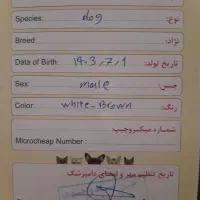 Species: dog نوع:
Breed: نژاد:
Date of Birth: 14.3,7,1 تاریخ تولد:
Sex: male جنس:
Color: white-Brown رنگ:
Microcheap Number : شماره میکروچیپ:
تاریخ تنظیم مهر و امضای دامپزشک